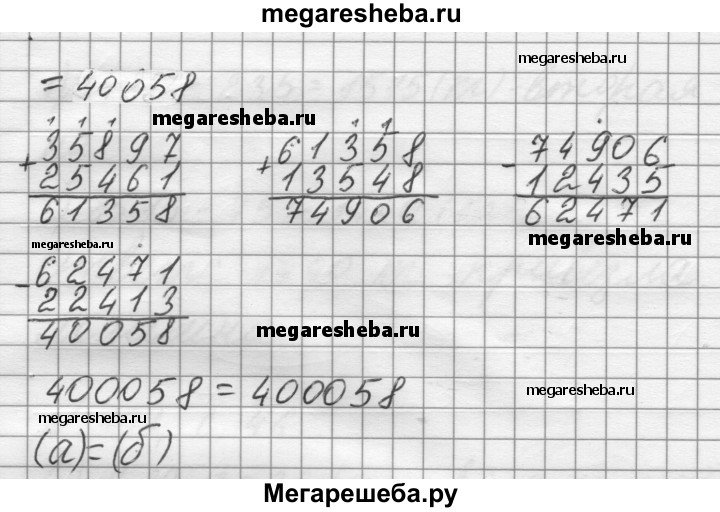 megaresheba.ru
megaresheba.ru
= 40058
megaresheba.ru
1 1 1
+ 35897
25461
61358
1 1
+ 61358
13548
74906
- 74906
12435
62471
megaresheba.ru
megaresheba.ru
- 62471
22413
40058
megaresheba.ru
400058 = 400058
megaresheba.ru
megaresheba.ru
(а)=(б)
Мегарешеба.ру